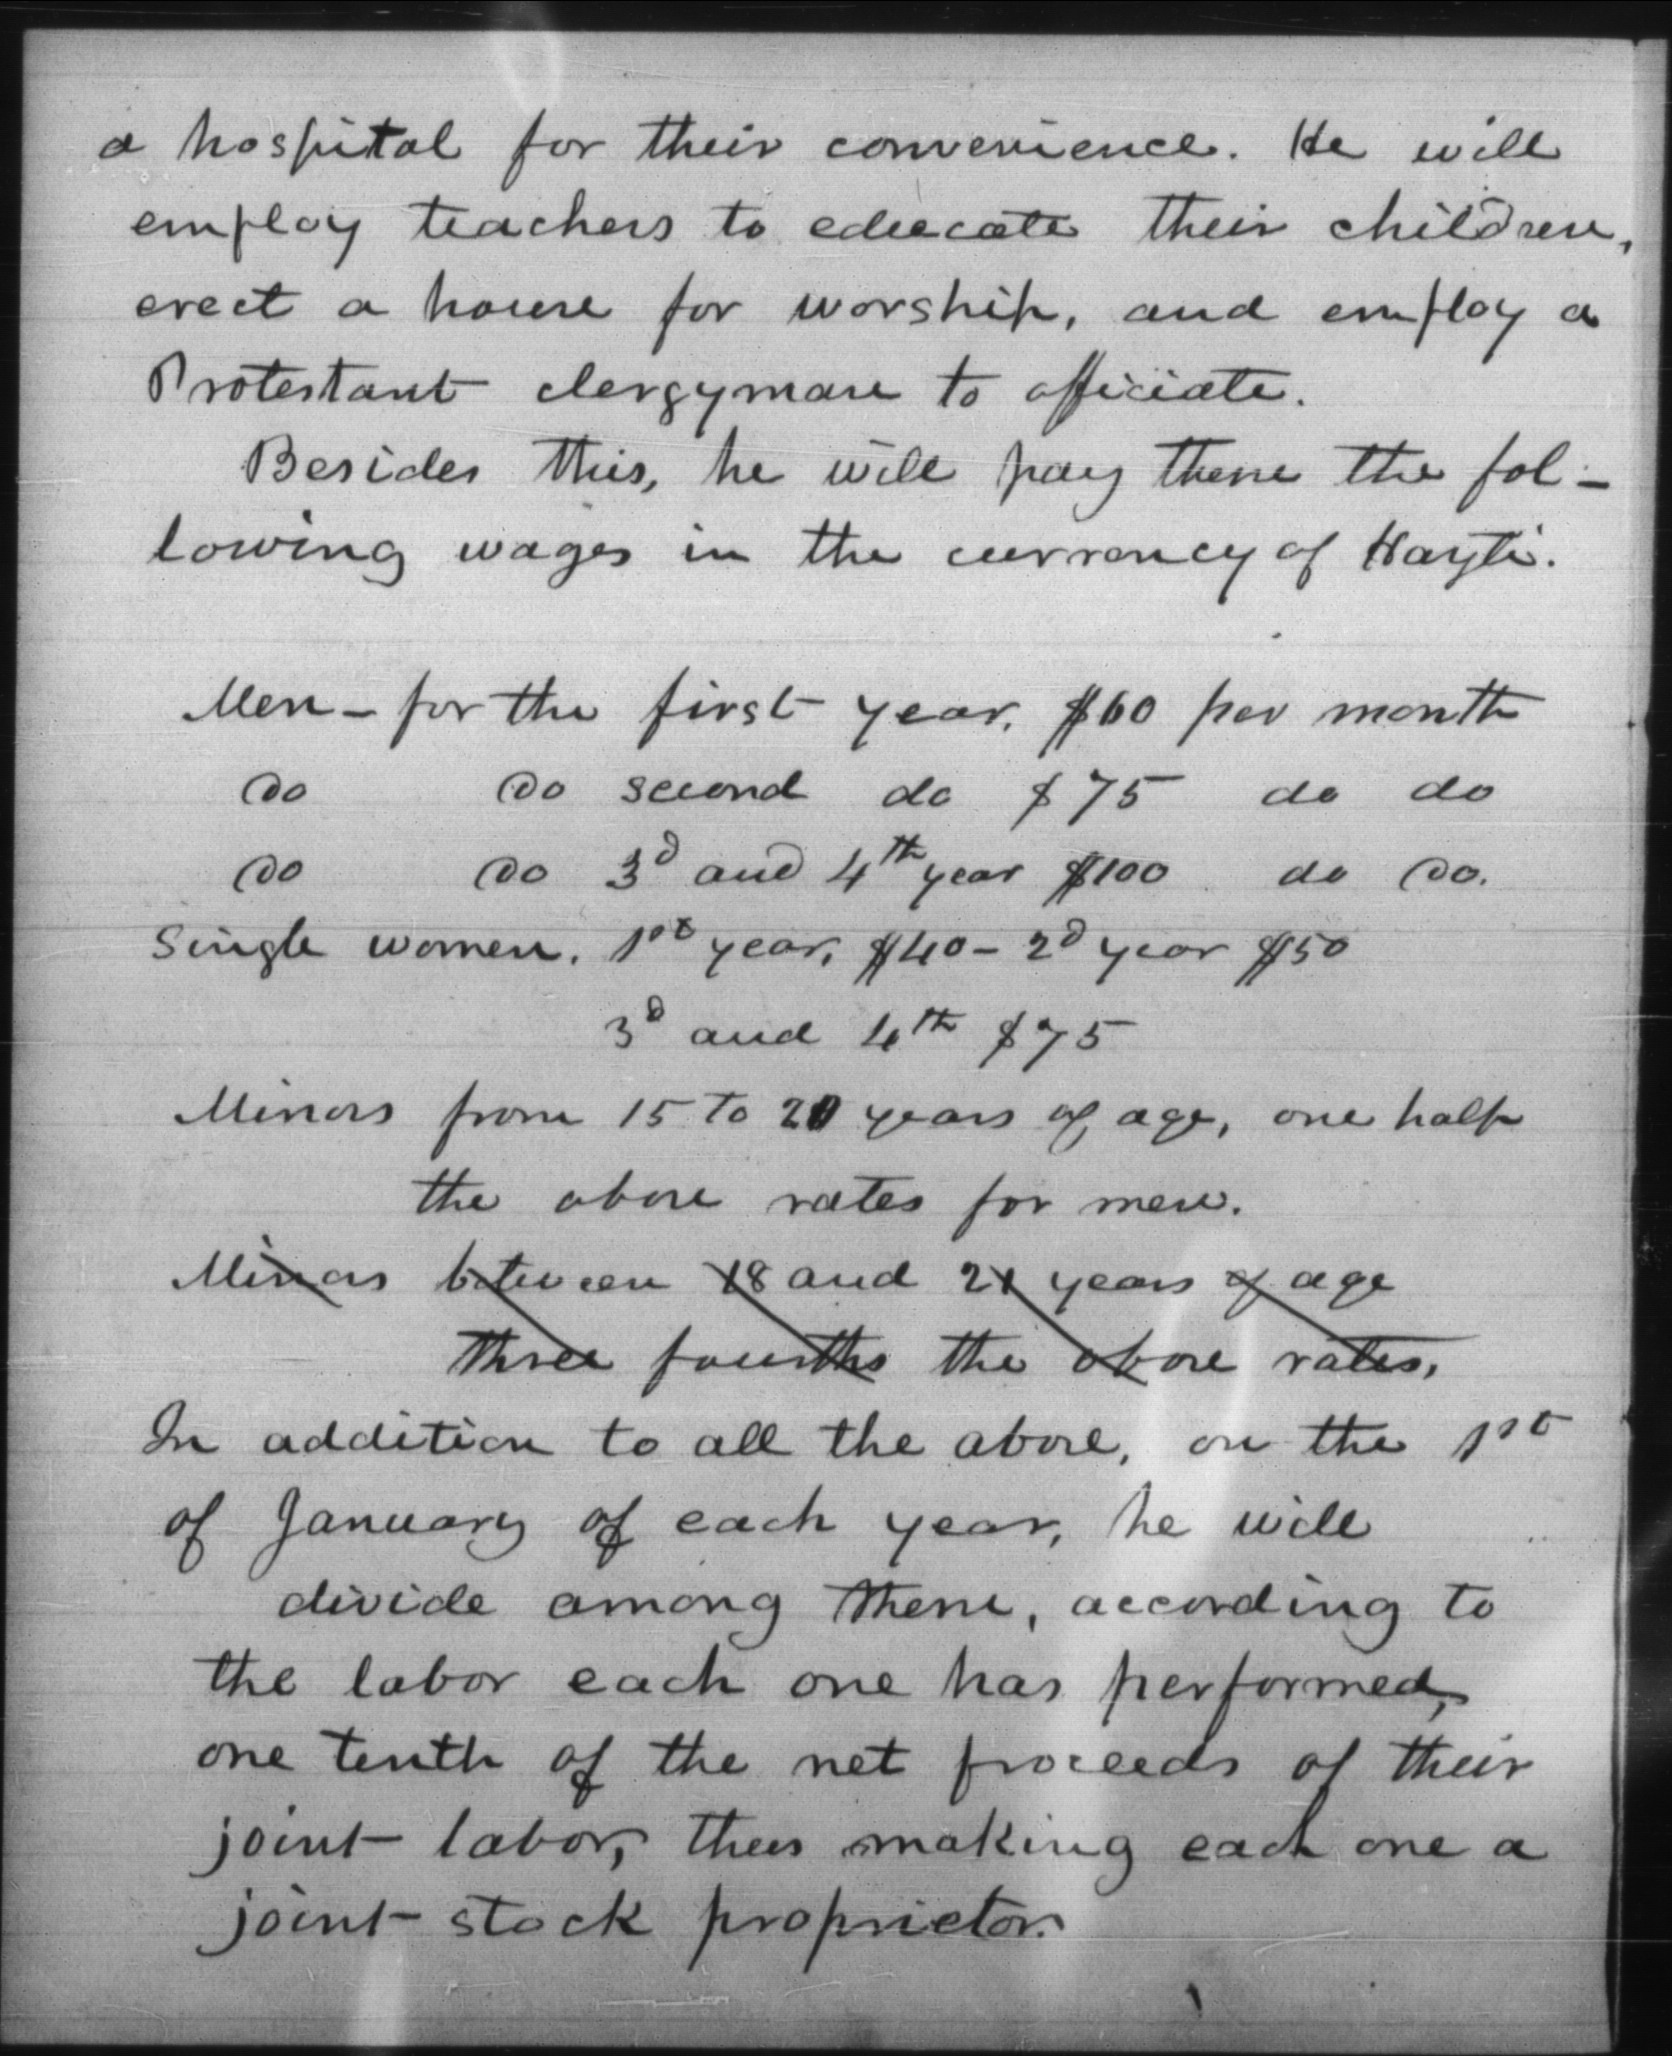 a hospital for their convenience. He will
employ teachers to educate their children,
erect a house for worship, and employ a
Protestant clergyman to officiate.
Besides this, he will pay them the fol-
lowing wages in the currency of Hayti.
Men - for the first year, $60 per month
do do second do $75 do do
do do 3d and 4th year $100 do do.
Single women. 1st year, $40 - 2d year $50
3d and 4th $75
Minors from 15 to 20 years of age, one half
the above rates for men.
Minors between 18 and 21 years of age
three fourths the above rates.
In addition to all the above, on the 1st
of January of each year, he will
divide among them, according to
the labor each one has performed,
one tenth of the net proceeds of their
joint labor, thus making each one a
joint stock proprietor.